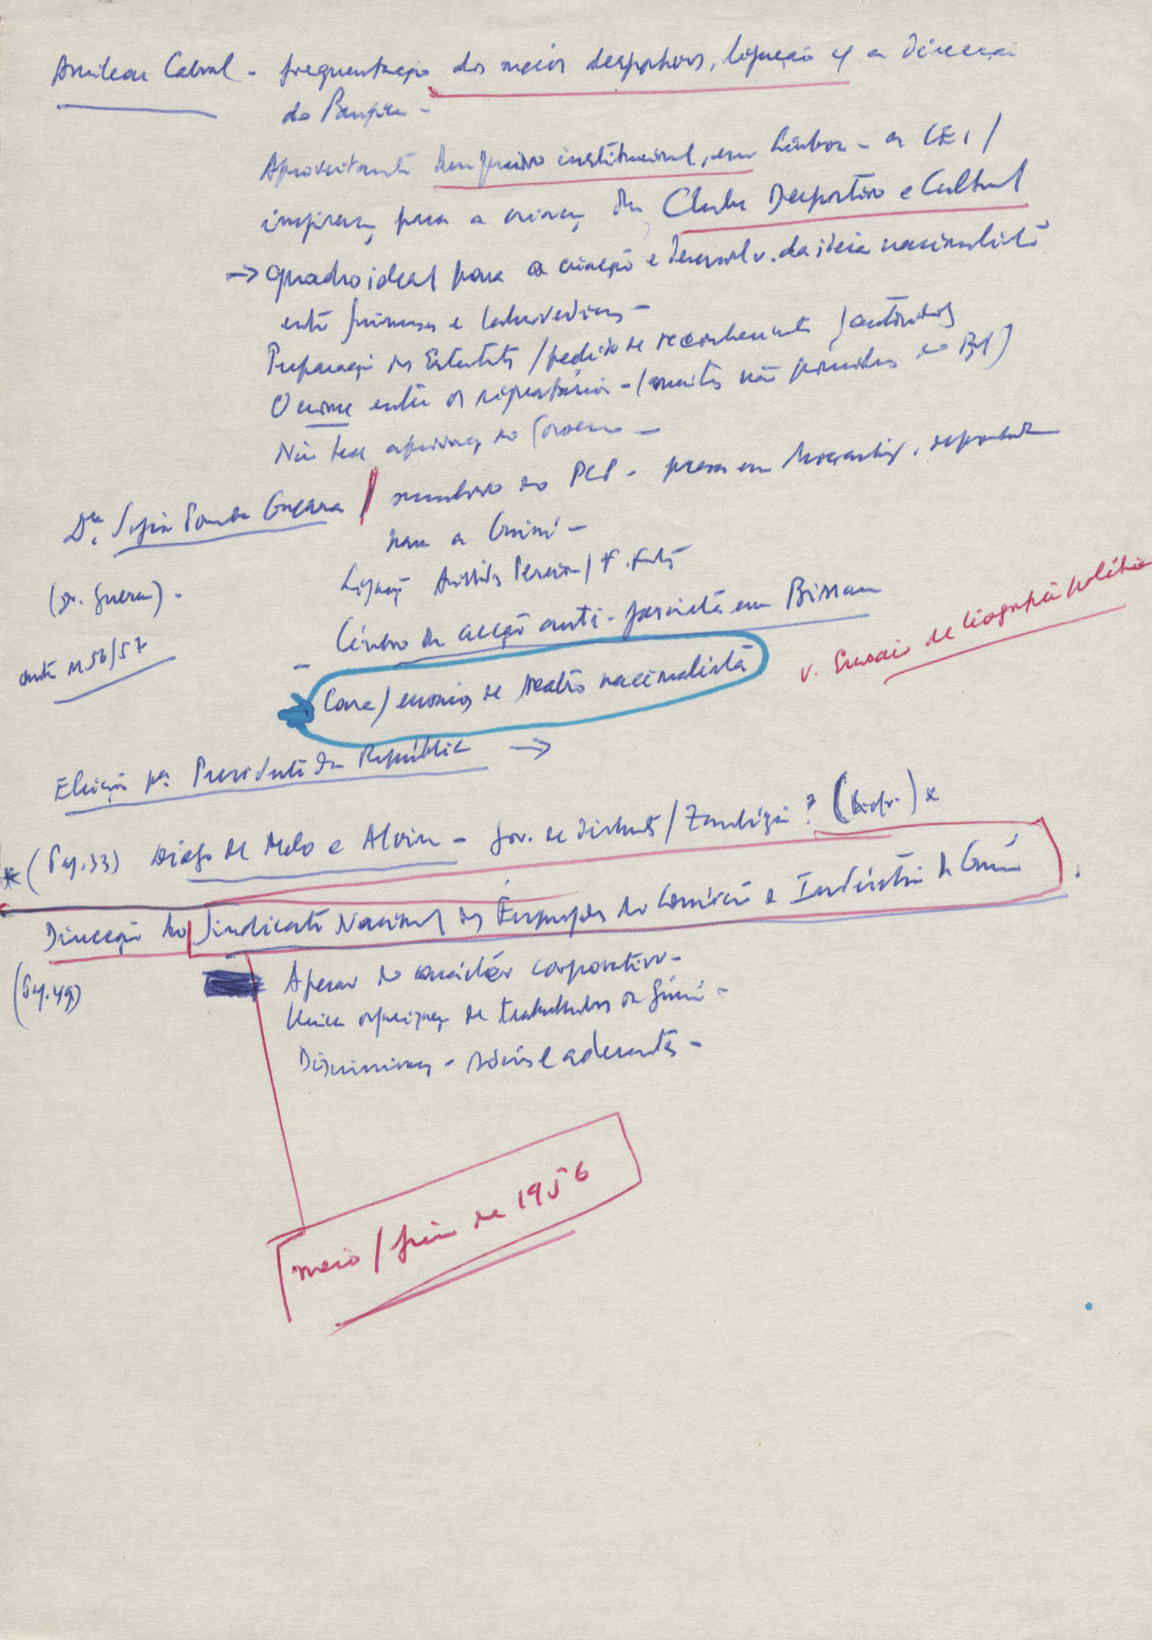 Amilcar Cabral - frequentação dos meios desportivos, ligação c/ a Direcção
do Benfica -
Aproveitante institucional, em Lisboa - a CEI /
inspiraç para a criaç du Clube Desportivo e Cultural
→ quadro ideal para a criação e desenvolv. da ideia nacionalista
entre guineenses e caboverdianos -
Preparação dos Estatutos / pedido de reconhecimento / autoridades
O nome entre os signatários - (muitos não
Não teve aprovaç do Governo -
Dra. Sofia Pomba Guerra / membro do PCP - presa em Moçambiq. deportada
para a Guiné -
(Dr. Guerra) -
Ligaç Aristides Pereira / F. Fortes
ante 1956/57
Centro de acção anti-fascista em Bissau
v. Ensaio de biografia política
- Casa / ensaios de teatro nacionalista
Eleição pª Presidente da República →
* (Pag. 33) Diogo de Melo e Alvim - Gov. de distrito / Zambézia? (Biogr.) x
Direcção do Sindicato Nacional dos Empregados do Comércio e Indústria da Guiné.
(Pag. 49)
Apesar do carácter corporativo -
Única organizaç de trabalhadores da Guiné -
Discriminaç - sócios e aderentes -
meio / fim de 1956